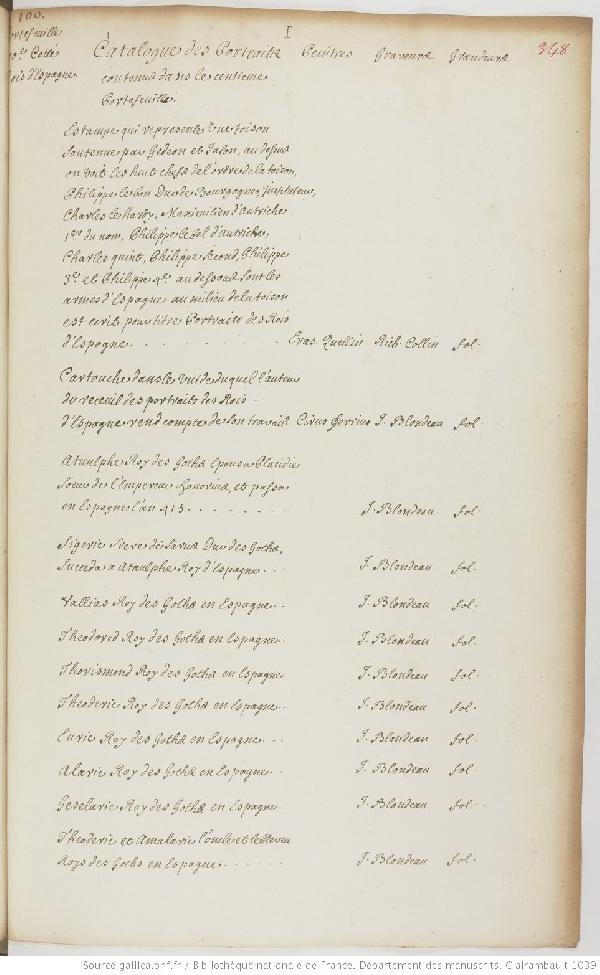 100.
I
Portefeuille
100.e Cotté
Rois d'Espagne
Catalogue des Portraits Peintres Graveurs Grandeurs 348
contenus dans le centieme
Portefeuille.
Estampe qui represente une toison
soutenue par Gedeon et Jason, au dessus
on voit les huit chefs de l'ordre de la toison,
Philippe le bon Duc de Bourgogne, Instituteur,
Charles le hardy, Maximilien d'autriche
1.er du nom, Philippe le bel d'autriche,
Charles quint, Philippe second, Philippe
3.e et Philippe 4.e au dessous sont les
armes d'Espagne au milieu de la toison
est ecrit pour titre Portraits des Rois
d'Espagne . . . . . . . . . Eras. Quellin Rich. Collin fol.
Cartouche dans le vuide duquel l'auteur
du receuil des portraits des Rois
d'Espagne rend compte de son travail Cirus ferrius J. Blondeau fol.
Ataulphe Roy des Goths epousa Placidie
soeur de l'Empereur honorius, et passa
en Espagne l'an 415 . . . . . . . J. Blondeau fol.
Sigeric frere de Sarus Duc des Goths,
succeda a Ataulphe Roy d'Espagne . . . J. Blondeau fol.
Vallias Roy des Goths en Espagne . . J. Blondeau fol.
Theodored Roy des Goths en Espagne . . J. Blondeau fol.
Thorismond Roy des Goths en Espagne J. Blondeau fol.
Theoderic Roy des Goths en Espagne . . J. Blondeau fol.
Euric Roy des Goths en Espagne . . . J. Blondeau fol.
Alaric Roy des Goths en Espagne . . . J. Blondeau fol.
Geselaric Roy des Goths en Espagne . . J. Blondeau fol.
Theoderic et Amalaric l'oncle et le Neveu
Roys des Goths en Espagne . . . . . . J. Blondeau fol.
Source gallica.bnf.fr / Bibliothèque nationale de France. Département des manuscrits. Clairambault 1039